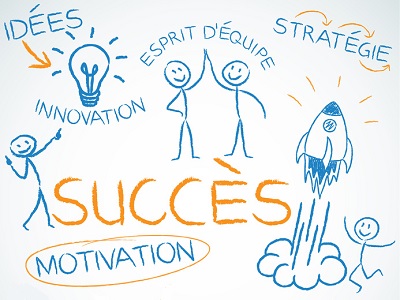 IDÉES
INNOVATION
ESPRIT D'ÉQUIPE
STRATÉGIE
SUCCÈS
MOTIVATION